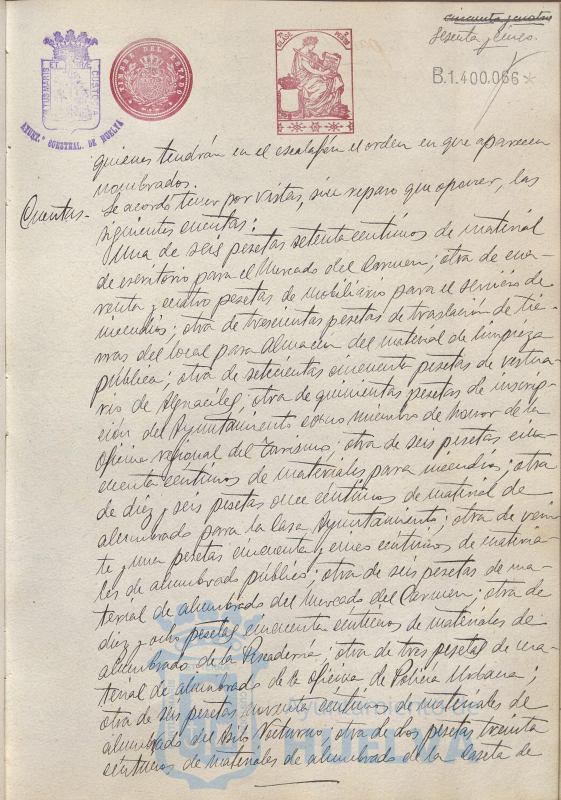 cincuenta y cuatro
sesenta y cinco.
B.1.400.066*
CLASE 8ª
TIMBRE DEL ESTADO
AYUNT.º CONSTNAL. DE HUELVA
quienes tendrán en el escalafón el orden en que aparecen
nombrados.
Cuentas- Se acordó tener por vistas, sin reparo que oponer, las
siguientes cuentas:
Una de seis pesetas setenta céntimos de material
de escritorio para el Mercado del Carmen; otra de cua-
renta y cuatro pesetas de mobiliario para el servicio de
incendios; otra de trescientas pesetas de traslación de tie-
rras del local para almacen del material de limpieza
pública; otra de setecientas cincuenta pesetas de vestua-
rio de Alguaciles; otra de quinientas pesetas de inscrip-
ción del Ayuntamiento como miembro de honor de la
Oficina regional del Turismo; otra de seis pesetas cin-
cuenta céntimos de materiales para incendios; otra
de diez y seis pesetas once céntimos de material de
alumbrado para la Casa Ayuntamiento; otra de vein-
te y una pesetas cincuenta y cinco céntimos de materia-
les de alumbrado público; otra de seis pesetas de ma-
terial de alumbrado del Mercado del Carmen; otra de
diez y ocho pesetas cincuenta céntimos de materiales de
alumbrado de la Pescadería; otra de tres pesetas de ma-
terial de alumbrado de la oficina de Policía Urbana;
otra de seis pesetas noventa céntimos de materiales de
alumbrado del Asilo Nocturno; otra de dos pesetas treinta
céntimos de materiales de alumbrado de la Caseta de
Ayuntamiento
HUELVA